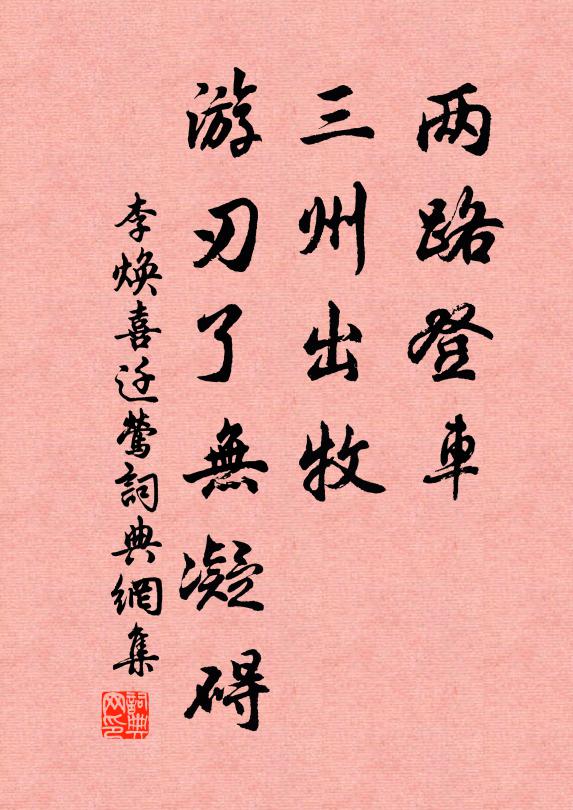 两路登車
三州出牧
游刃了無凝碍
李焕喜迁莺詞典網集
詞典
网印